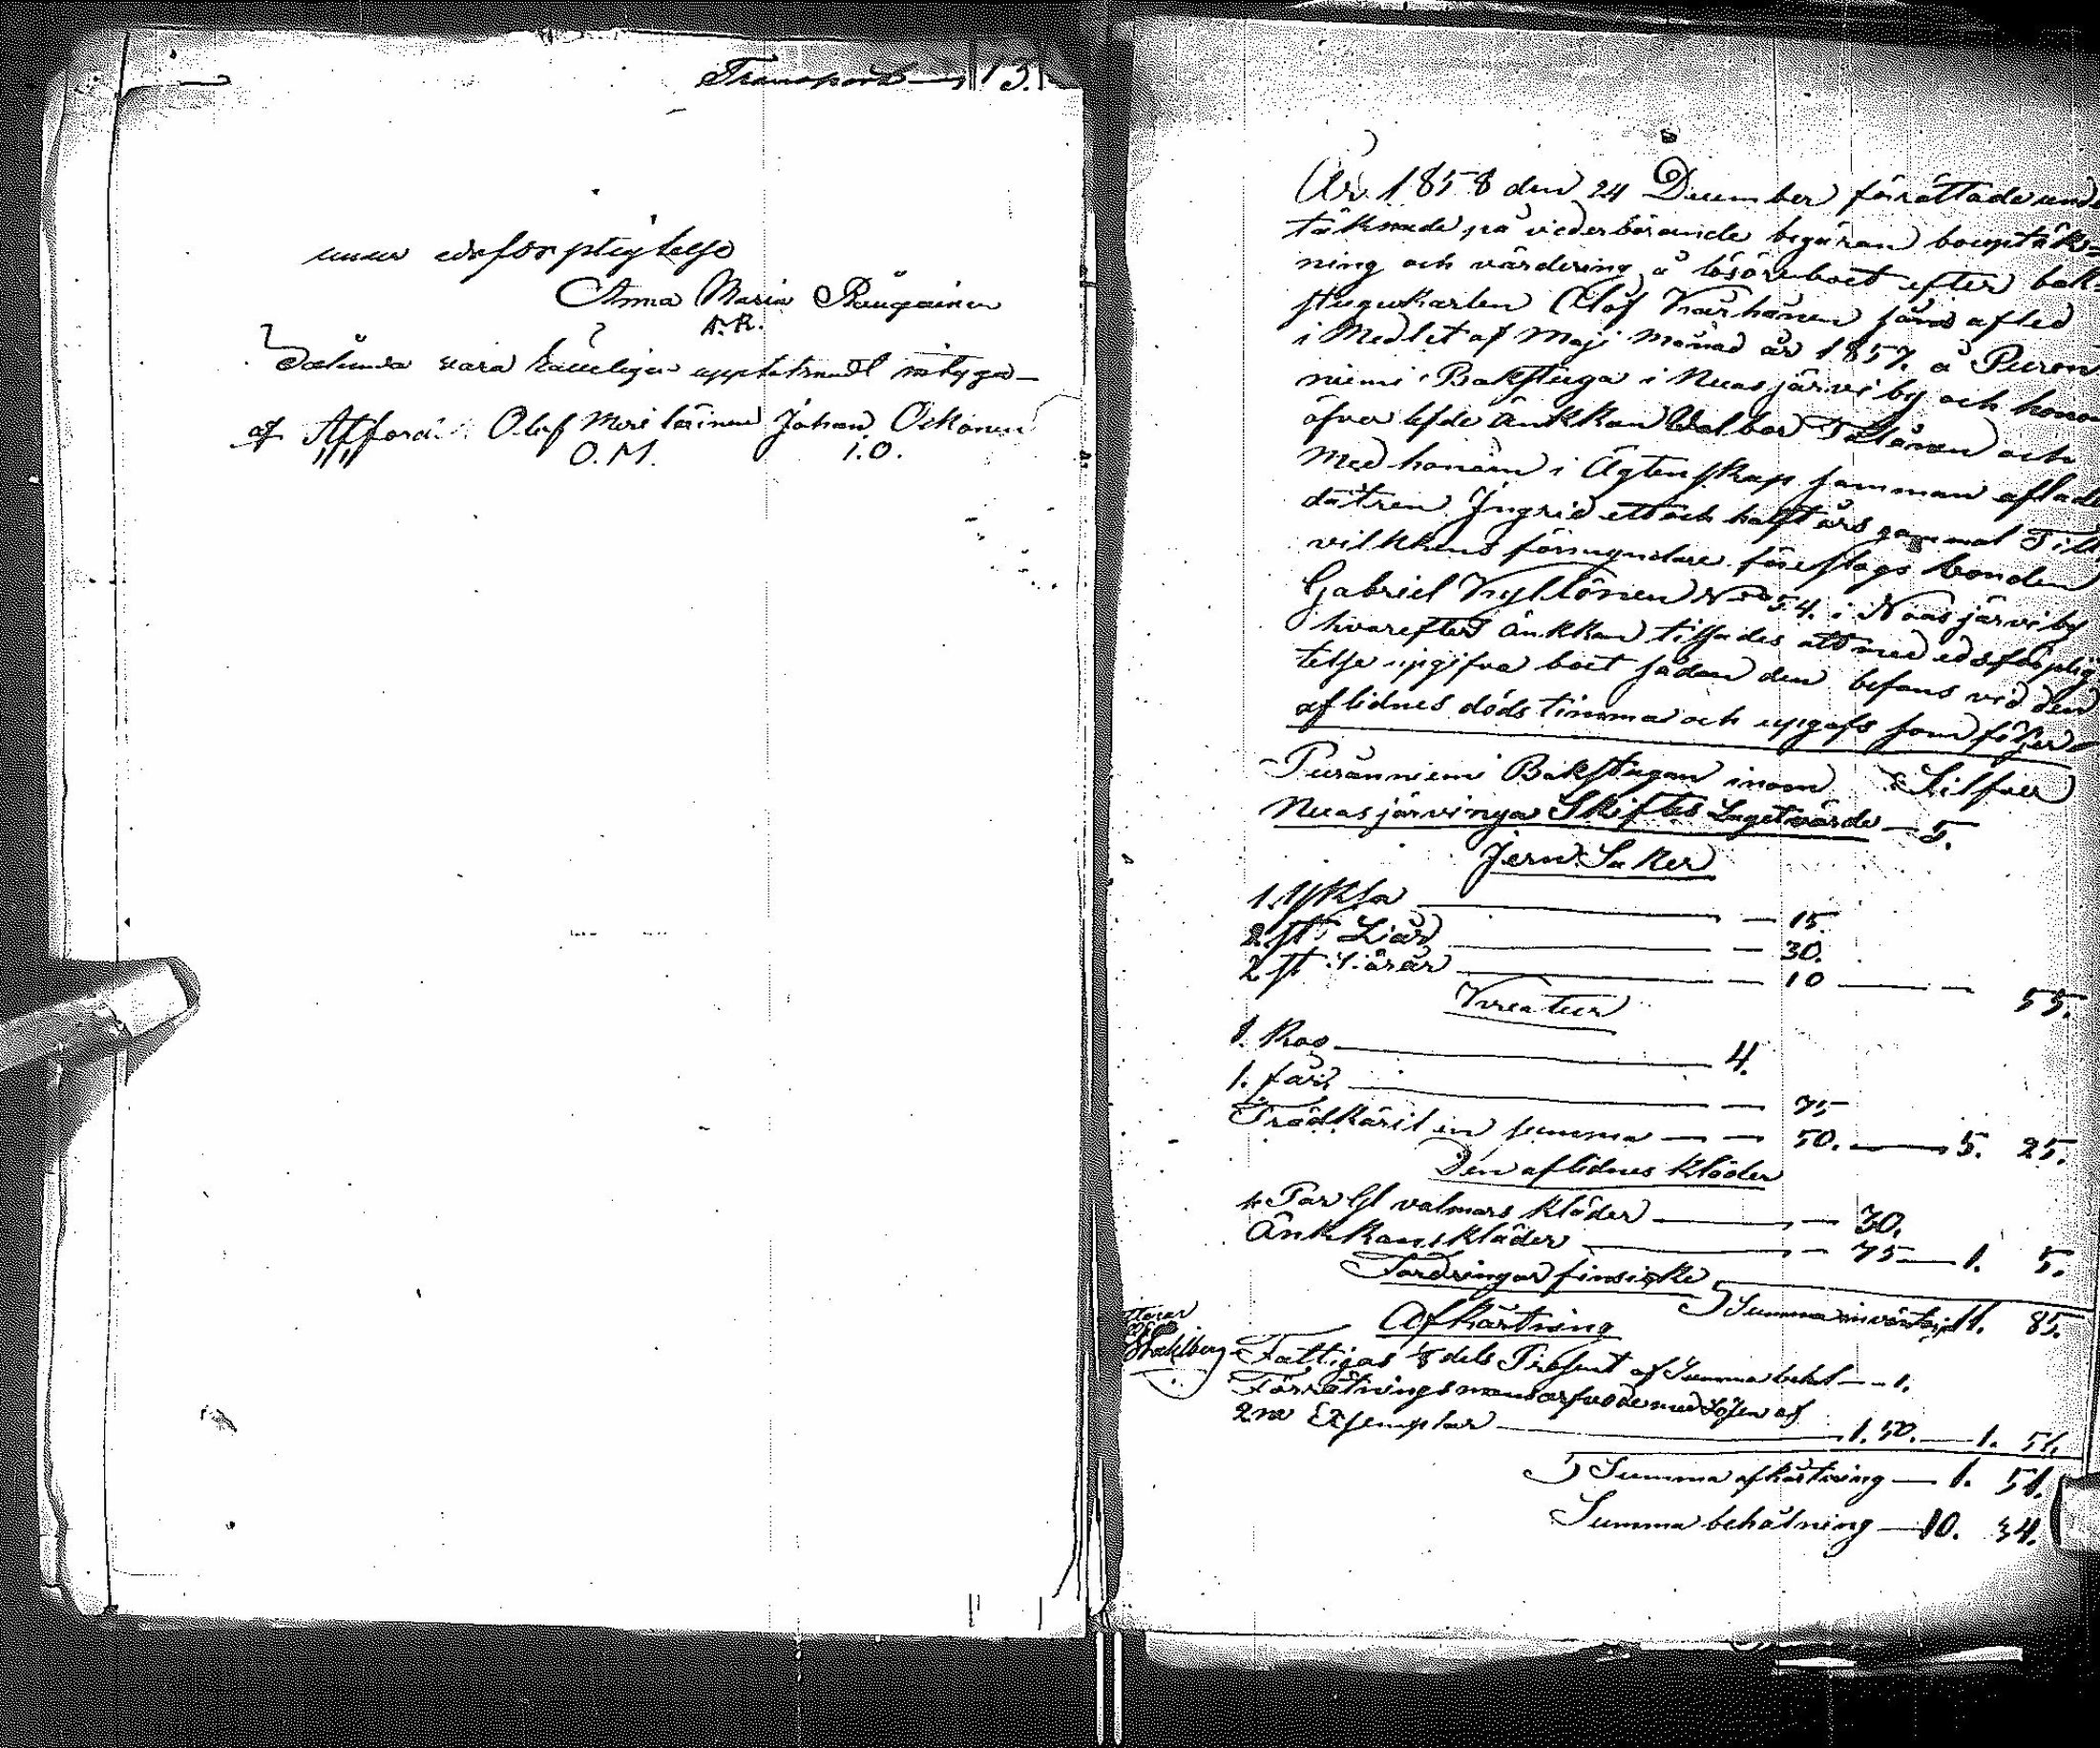 Transport 13.
under edsförpligtelse
Anna Maria
A.R.
Sålunda vara upptecknadt intyga
af Olof Meriläinen Johan Oikonen
O.M. I.O.
År 1858 den 24 December förrättade unde
täknade på vederbörande begäran bouptäkt=
ning och värdering å lösöreboet efter bak=
stugukarlen Olof Kärhänen som afled
i Medlet af Maj Månad år 1857. å Puron
niemi Bakstuga i Nuasjärvi by och honom
öfverlefde änkkan Walbor Tolanen och
med honom i Ägtenskap samman aflade
dottren Ingrid ett och halft års gammal Till
vilkkens förmyndare föreslogs bonden
Gabriel Kyllönen No 54. i Nuasjärvi by
hvarefter änkkan tillsades att med edsförplig
telse upgifva boet sådan den befans vid den
aflidnes dödstimma och upgafs som följer
Puronniemi Bakstugan inom Silfver
Nuasjärvinya Skiftes Lagetvärde — 5.
Jern Saker
1. Yksa — 15.
2 st Liar — 30.
2 st — 10 — 55.
Kreatur
1. Ko — 4.
1. får — 75
Trädkäril en summa — 50. — 5. 25.
Den aflidnes kläder
1 Par Gl valmars kläder — 30.
Änkkans kläder — 75 — 1. 5.
Fordringar finsicke
Summa inventarium 11. 85.
Afkårtning
Wahlberg
Fattigas 1/8 dels Prosent af Summa behol — 1.
Förrätningsmans arfvode med Lösen af
2ne Exsemplar — 1. 50. — 1. 51.
Summa afkårtning — 1. 51.
Summa behålning — 10. 34.